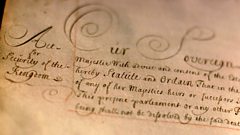 Act
for
Security of the
Kingdom
Our Sovereign
Majestie With advice and consent of the
hereby Statute and Ordain That in the
of any of her Majesties heirs or successors
this present parliament or any other
being shall not be dissolved by the said